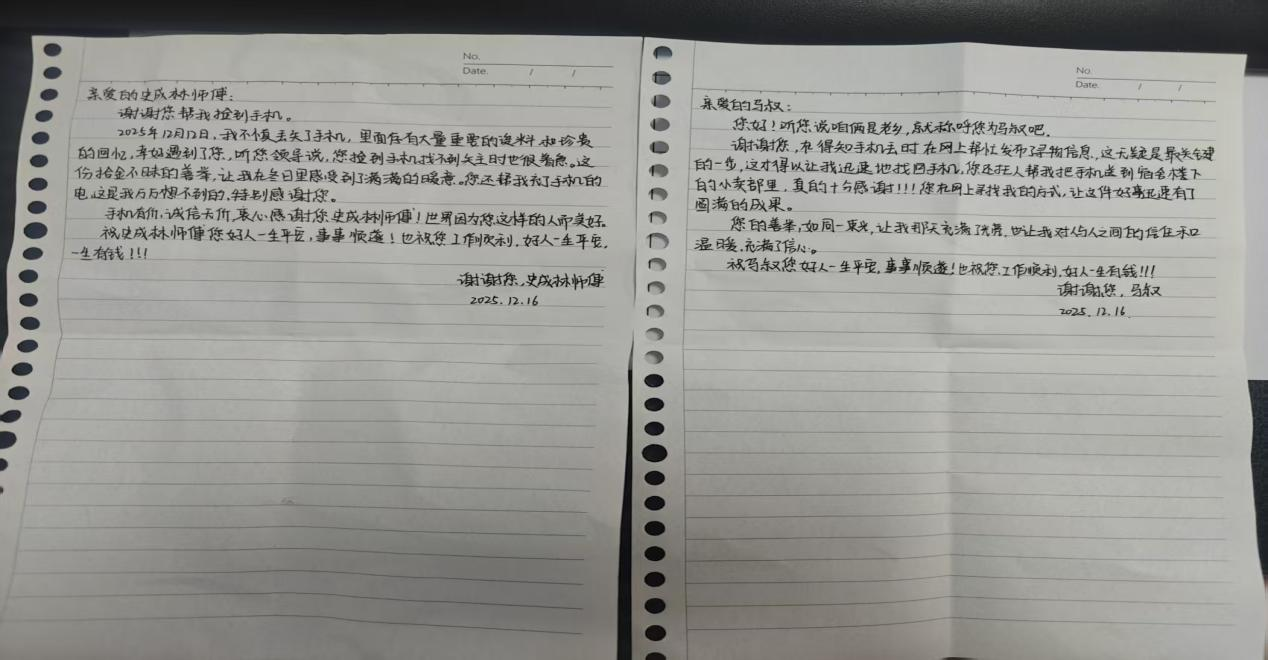 No.
Date. / /
亲爱的史成林师傅：
谢谢您帮我捡到手机。
2025年12月12日，我不慎丢失了手机，里面存有大量重要的资料和珍贵
的回忆，幸好遇到了您，听您领导说，您捡到手机找不到失主时也很着急。这
份拾金不昧的善举，让我在冬日里感受到了满满的暖意。您还帮我充了手机的
电，这是我万万想不到的，特别感谢您。
手机有价，诚信无价，衷心感谢您史成林师傅！世界因为您这样的人而美好。
祝史成林师傅您好人一生平安，事事顺遂！也祝您工作顺利，好人一生平安，
一生有钱！！！
谢谢您，史成林师傅
2025.12.16
No.
Date. / /
亲爱的马叔：
您好！听您说咱俩是老乡，就称呼您为马叔吧。
谢谢您，在得知手机丢时在网上帮忙发布了寻物信息，这无疑是最关键
的一步，这才得以让我迅速地找回手机。您还托人帮我把手机送到宿舍楼下
的小卖部里，真的十分感谢！！！您在网上寻找我的方式，让这件好事迅速有了
圆满的成果。
您的善举，如同一束光，让我那天充满了光亮，也让我对人与人之间的信任和
温暖，充满了信心。
祝马叔您好人一生平安，事事顺遂！也祝您工作顺利，好人一生有钱！！！
谢谢您，马叔
2025.12.16.